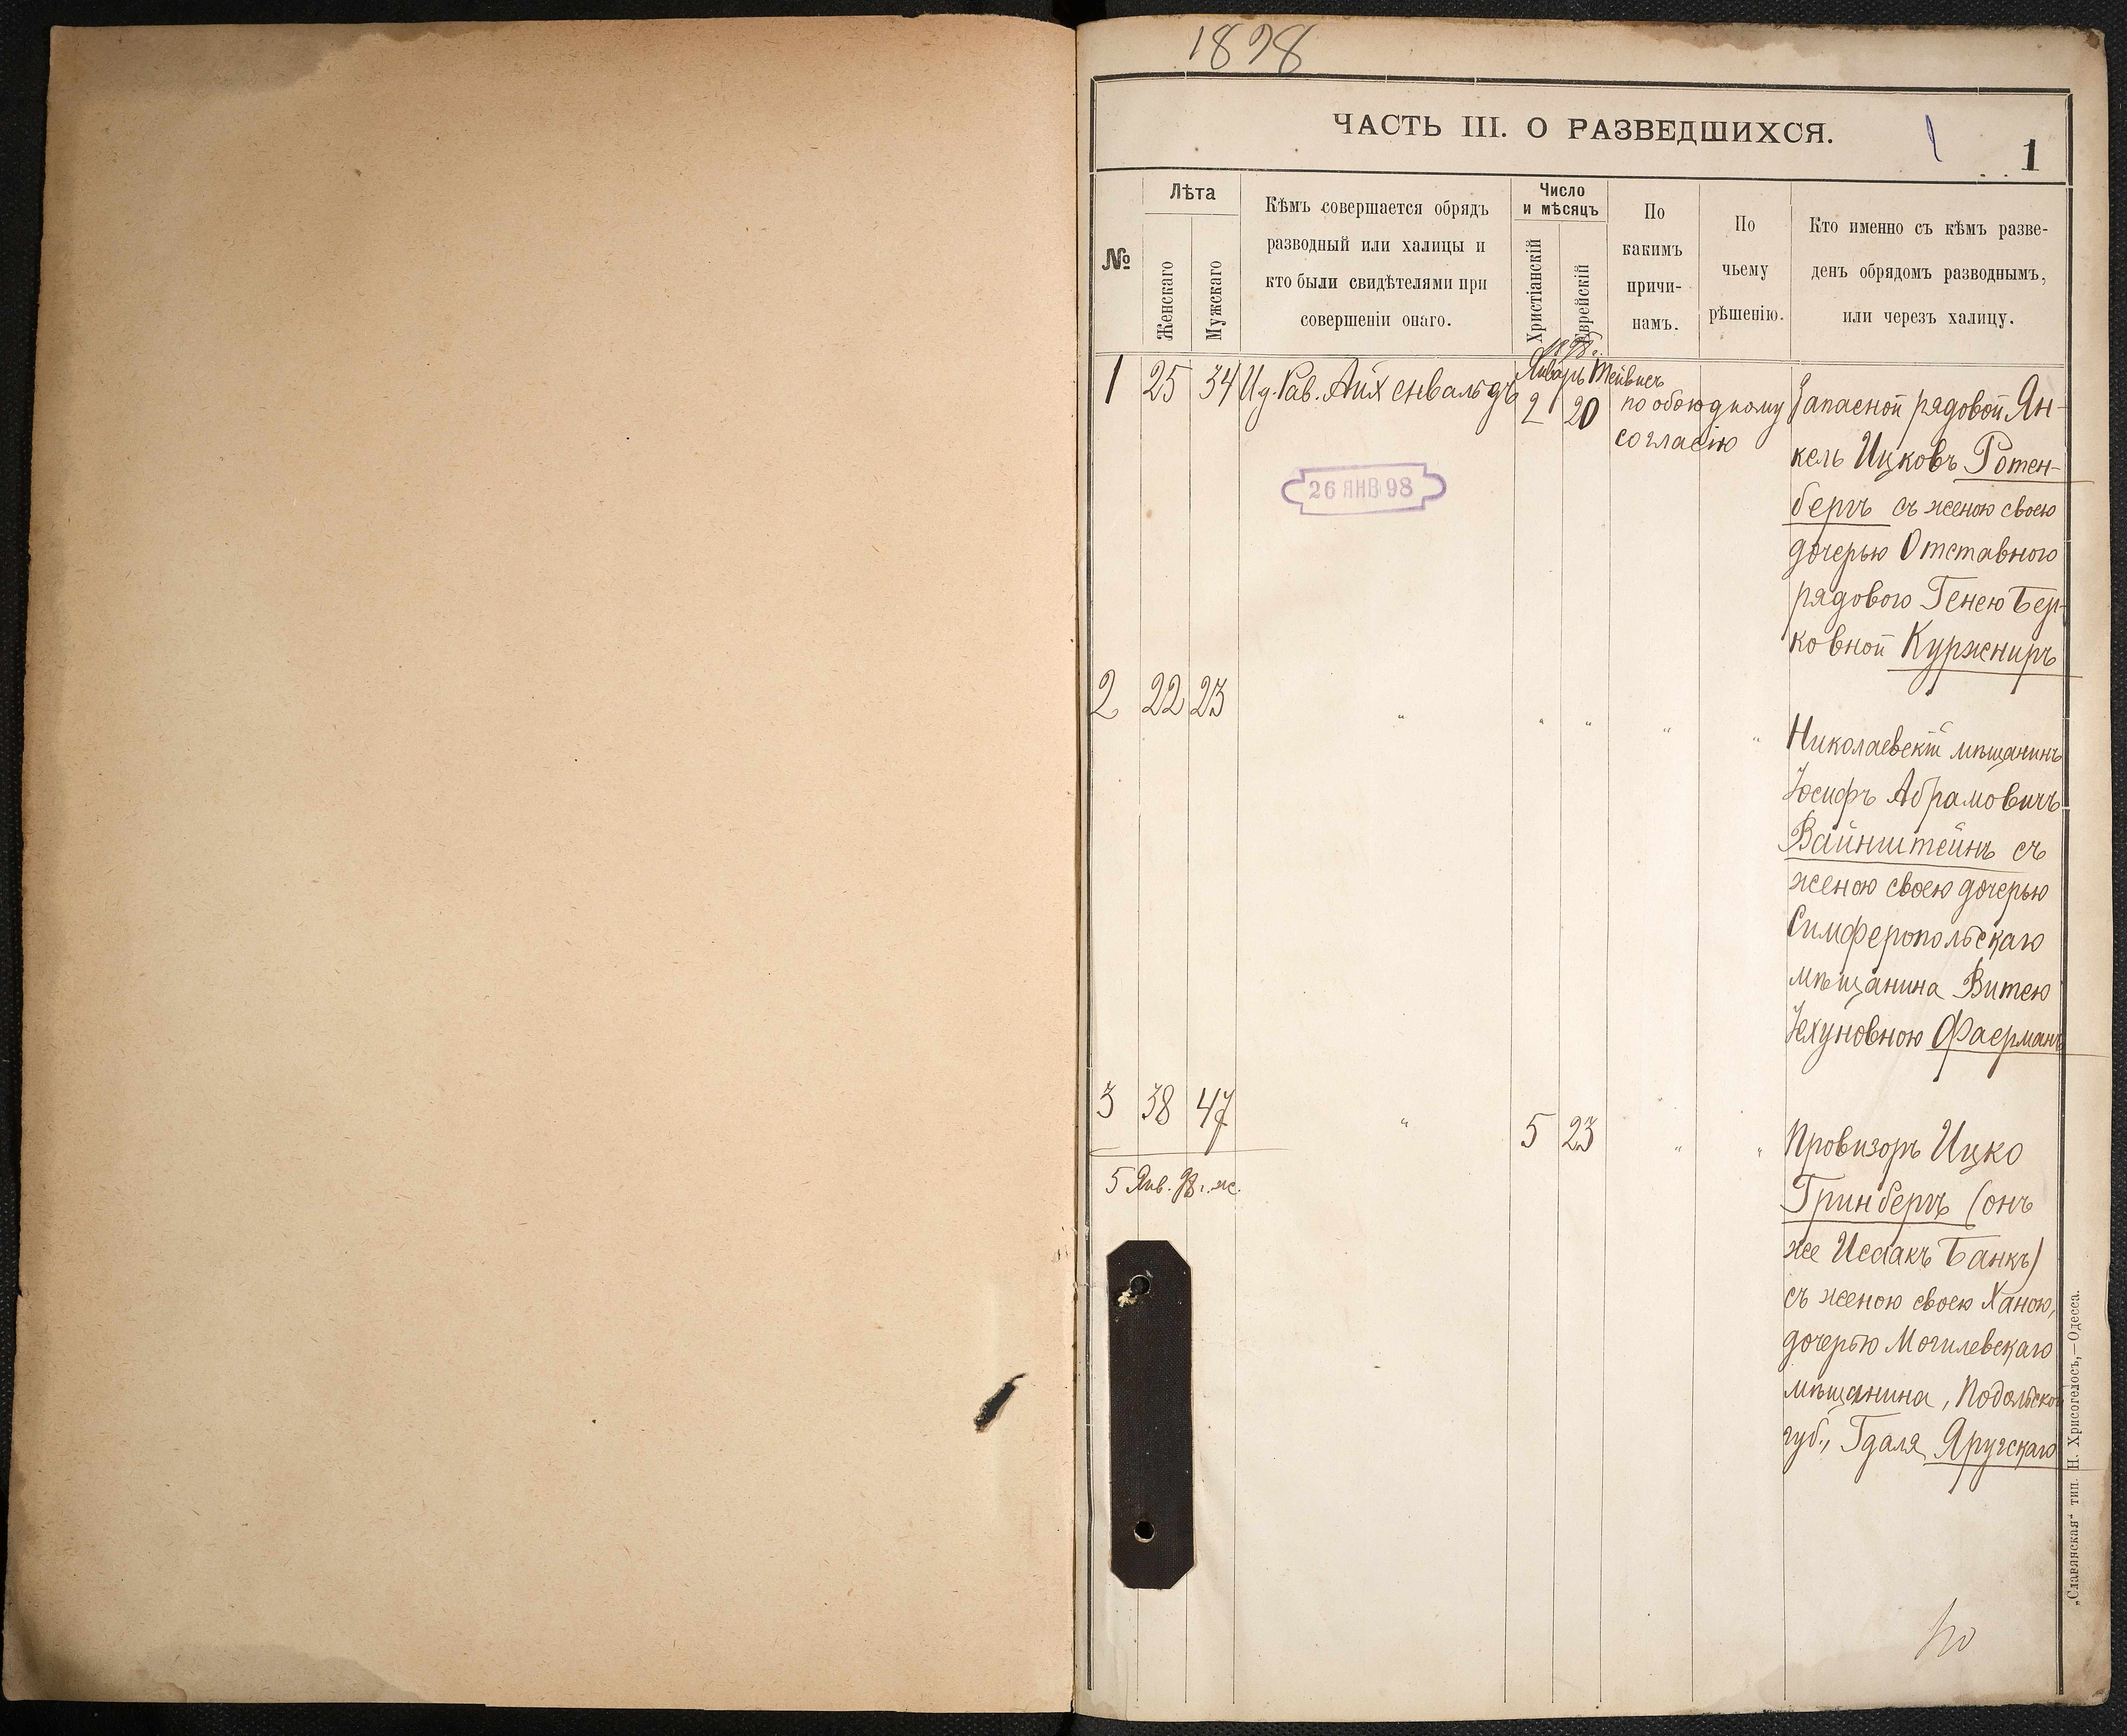 1898
ЧАСТЬ III. О РАЗВЕДШИХСЯ.
1
№
Лѣта
Женскаго
Мужскаго
Кѣмъ совершается обрядъ
разводный или халицы и
кто были свидѣтелями при
совершеніи онаго.
Число
и мѣсяцъ
Христіанскій
Еврейскій
По
какимъ
причи-
намъ.
По
чьему
рѣшенію.
Кто именно съ кѣмъ разве-
денъ обрядомъ разводнымъ,
или черезъ халицу.
1898 г.
Январь Тейвисъ
1 25 34 Ид. Рав. Айхенвальдъ 2 20 по обоюдному
согласію
Запасной рядовой Ян-
кель Ицковъ Ротен-
бергъ съ женою своею
дочерью Отставного
рядового Генею Бер-
ковной Куржниръ
26 ЯНВ 98
2 22 23 " " " " "
Николаевскій мѣщанинъ
Іосифъ Абрамовичъ
Вайнштейнъ съ
женою своею дочерью
Симферопольскаго
мѣщанина Витею
Іехуновною Фаерманъ
3 38 47 " 5 23 " "
Провизоръ Ицко
Гринбергъ (онъ
же Исаакъ Банкъ)
съ женою своею Ханою,
дочерью Могилевскаго
мѣщанина, Подольской
губ., Гдаля Яругскаго
5 Янв. 98 г.
„Славянская“ тип. Н. Хрисогелосъ,—Одесса.